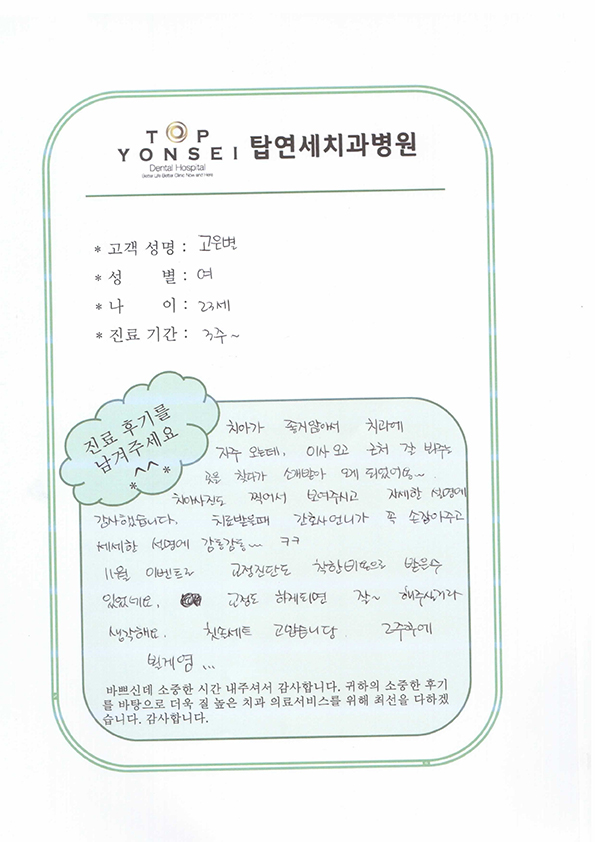 TOP
YONSEI 탑연세치과병원
Dental Hospital
Better Life Better Clinic Now and Here
* 고객 성명 : 고은별
* 성 별 : 여
* 나 이 : 23세
* 진료 기간 : 3주~
진료 후기를
남겨주세요
*^^*
치아가 좋지않아서 치과에
자주 오는데, 이사오고 근처 잘 봐주는
곳을 찾다가 소개받아 오게 되었어요~.
치아사진도 찍어서 보여주시고 자세한 설명에
감사했습니다. 치료받을때 간호사언니가 꼭 손잡아주고
세세한 설명에 감동감동~~ ㅋㅋ
11월 이벤트로 교정진단도 착한비용으로 받을수
있었네요. 교정도 하게되면 잘~ 해주실거라
생각해요. 칫솔세트 고맙습니당. 2주후에
뵐게염...
바쁘신데 소중한 시간 내주셔서 감사합니다. 귀하의 소중한 후기
를 바탕으로 더욱 질 높은 치과 의료서비스를 위해 최선을 다하겠
습니다. 감사합니다.